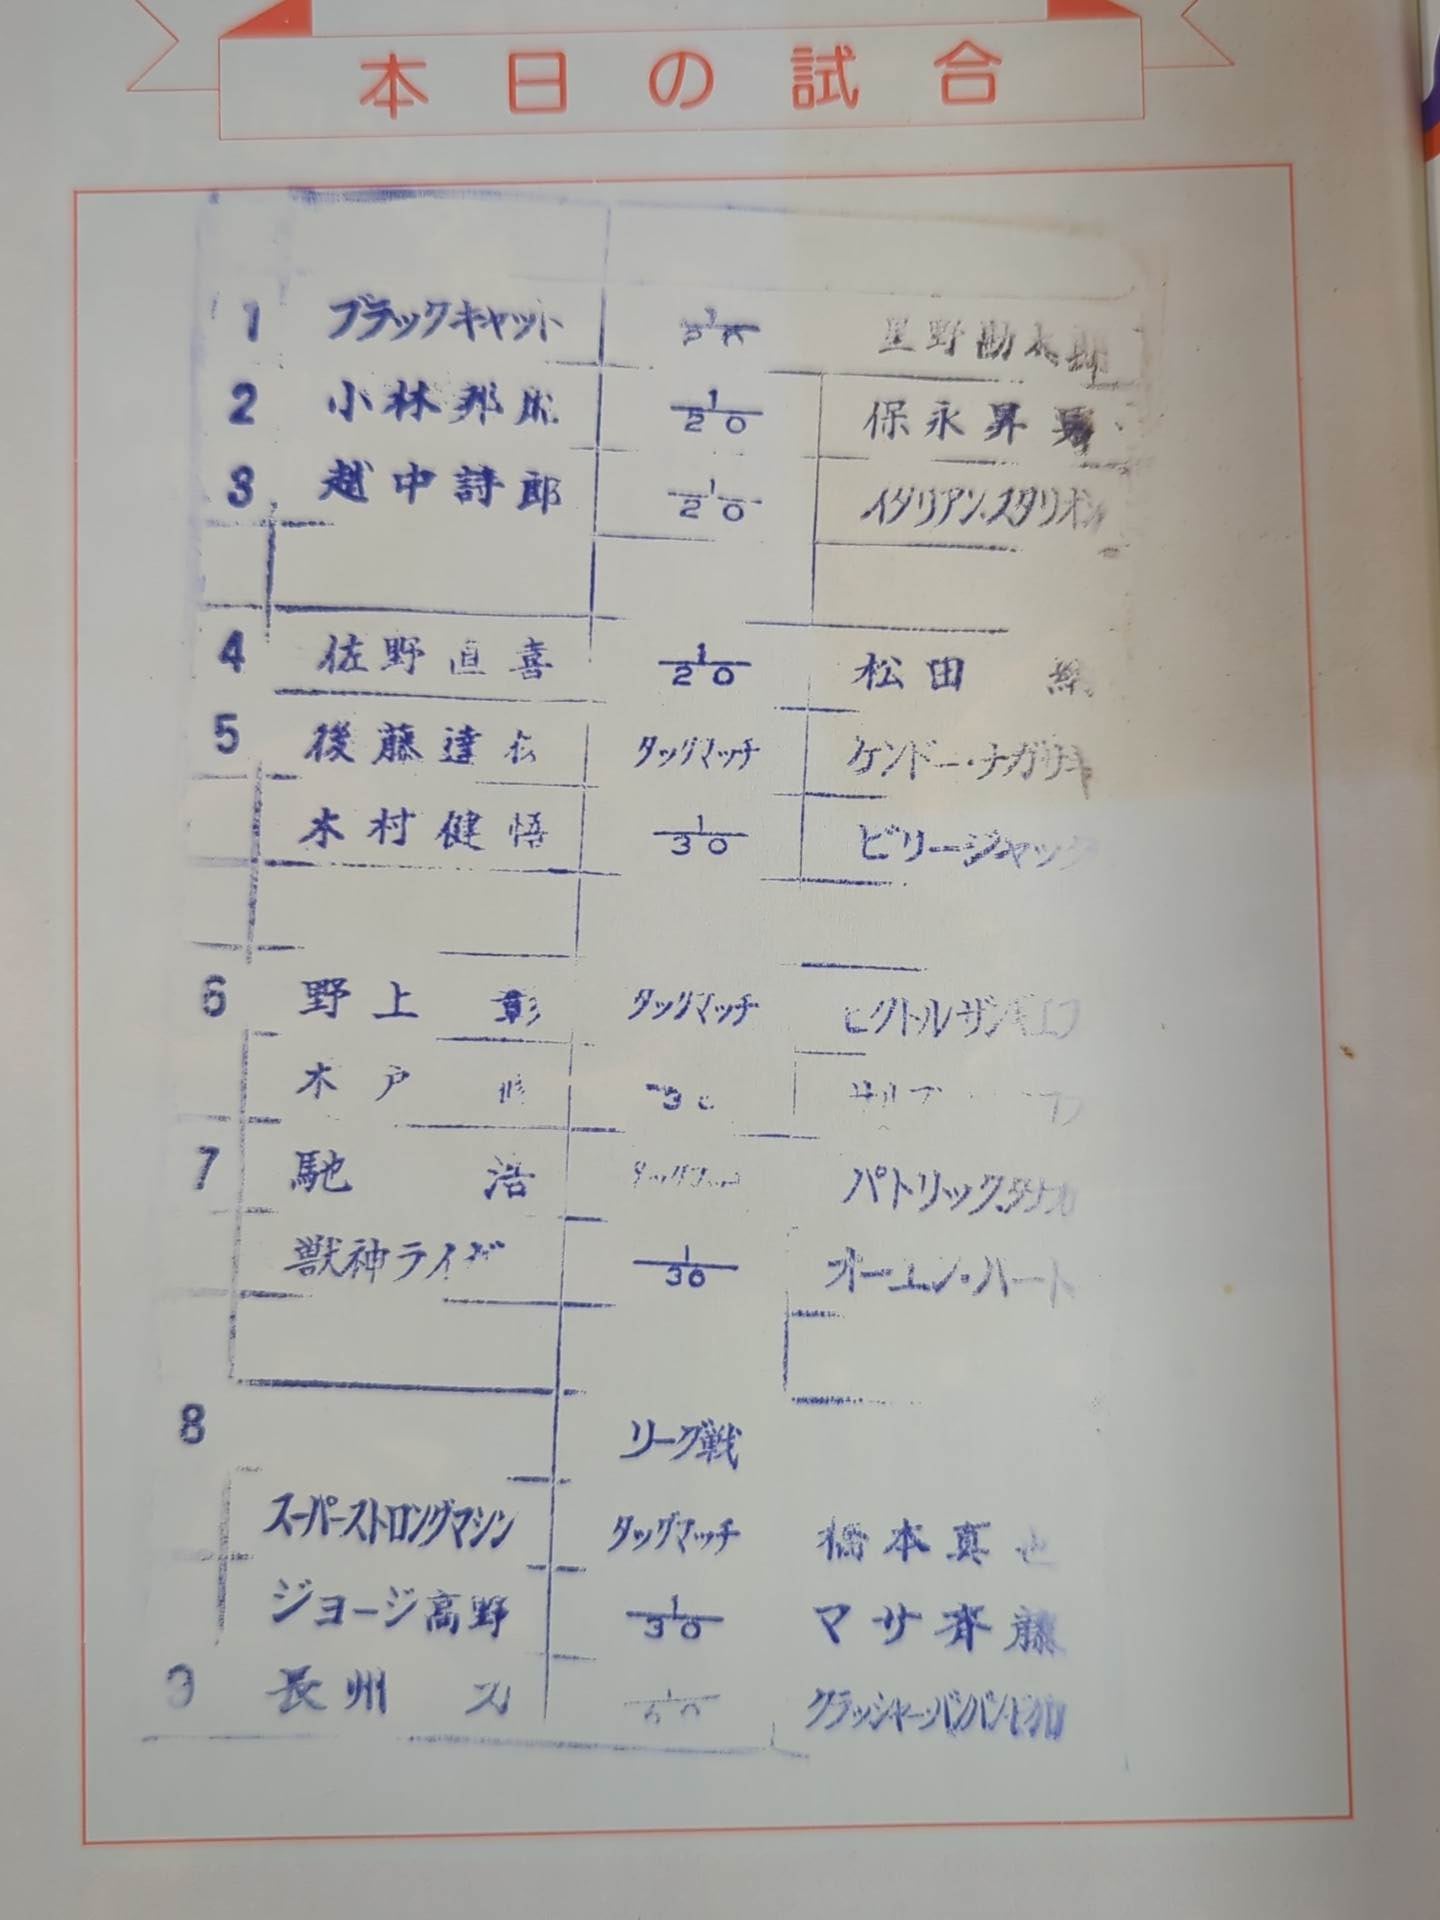 本日の試合
1 ブラックキャット 星野勘太郎
2 小林邦 1/20 保永昇
3 越中詩郎 1/20 イタリアン・スタリオン
4 佐野直喜 1/20 松田
5 後藤達 タッグマッチ ケンドー・ナガサキ
木村健悟 1/30 ビリージャック
6 野上彰 タッグマッチ ビクトルザンギエフ
木戸 3
7 馳浩 パトリック.タナカ
獣神ライガ 1/30 オーエン・ハート
8 リーグ戦
スーパーストロングマシン タッグマッチ 橋本真也
ジョージ高野 1/30 マサ斉藤
長州 クラッシャー・バンバン・ビガロ